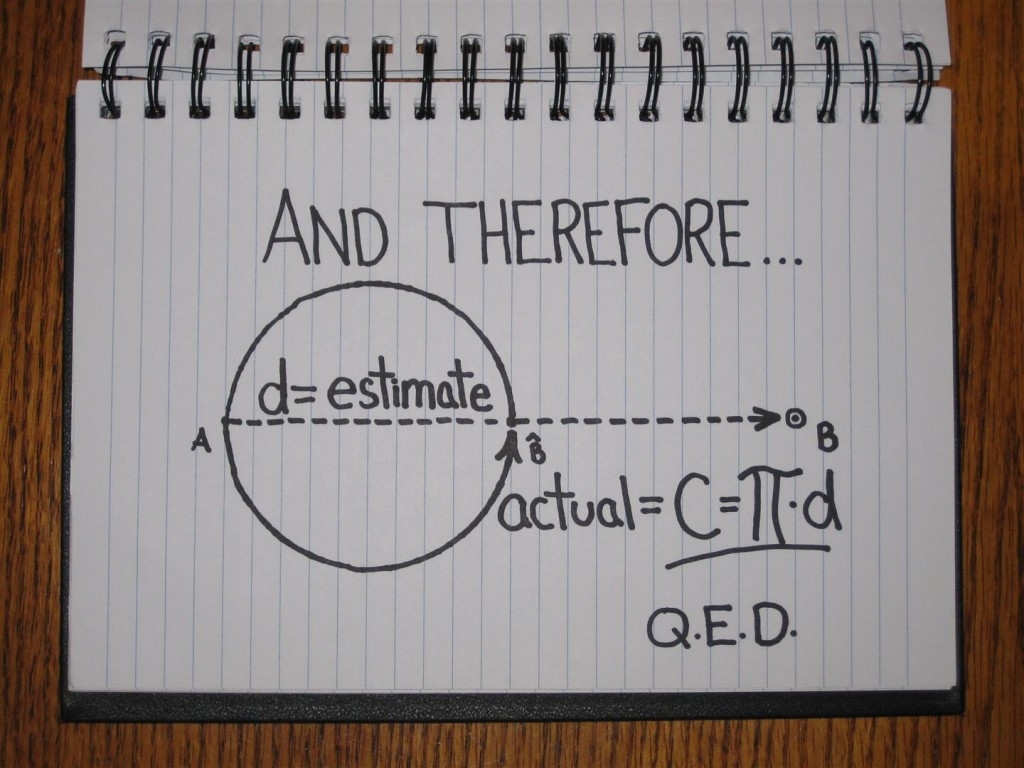 AND THEREFORE...
d= estimate
A
B̂
B
actual= C=π·d
Q.E.D.